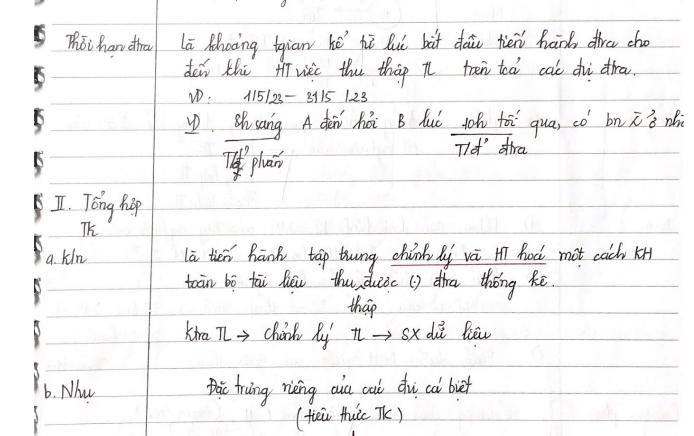 Thời hạn đtra là khoảng tgian kể từ lúc bắt đầu tiến hành đtra cho
đến khi HT việc thu thập TL trên toả các đvị đtra.
VD: 1/5/23 - 31/5/23
VD. 8h sáng A đến hỏi B lúc 10h tối qua, có bn ở nh
T/đ' phấn T/đ' đtra
II. Tổng hợp
TK
a. kln là tiến hành tập trung chỉnh lý và HT hoá một cách KH
toàn bộ tài liệu thu được (.) đtra thống kê.
thập
Ktra TL → chỉnh lý TL → SX dữ liệu
b. Nhụ Đặc trưng riêng của các đvị cá biệt
(tiêu thức TK)